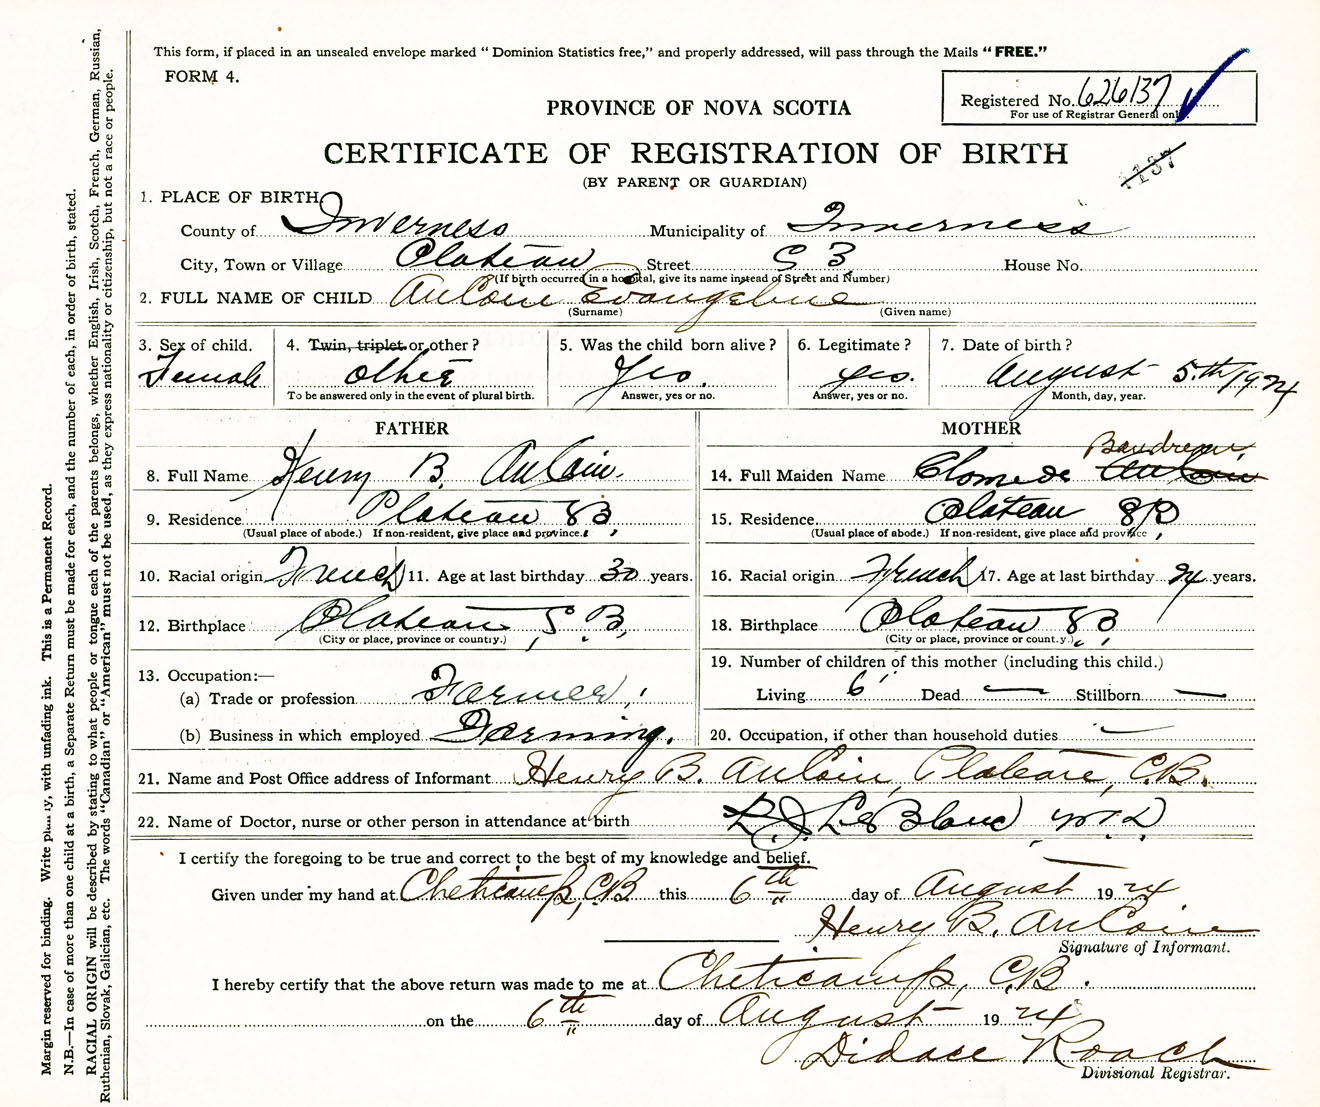 This form, if placed in an unsealed envelope marked “Dominion Statistics free,” and properly addressed, will pass through the Mails “FREE.”
FORM 4.
Registered No. 626137
For use of Registrar General only.
PROVINCE OF NOVA SCOTIA
CERTIFICATE OF REGISTRATION OF BIRTH
1137
(BY PARENT OR GUARDIAN)
1. PLACE OF BIRTH
County of Inverness Municipality of Inverness
City, Town or Village Plateau Street House No.
(If birth occurred in a hospital, give its name instead of Street and Number)
2. FULL NAME OF CHILD AuCoin Evangeline
(Surname) (Given name)
3. Sex of child. 4. Twin, triplet or other? 5. Was the child born alive? 6. Legitimate? 7. Date of birth?
Female other Yes. yes. August 5th/1924
To be answered only in the event of plural birth. Answer, yes or no. Answer, yes or no. Month, day, year.
FATHER
8. Full Name Henry B. AuCoin.
9. Residence Plateau C B,
(Usual place of abode.) If non-resident, give place and province.
10. Racial origin French 11. Age at last birthday 30 years.
12. Birthplace Plateau C. B,
(City or place, province or country.)
13. Occupation:—
(a) Trade or profession Farmer
(b) Business in which employed Farming.
MOTHER
Boudreau
14. Full Maiden Name AuCoin
15. Residence Plateau C B,
(Usual place of abode.) If non-resident, give place and province
16. Racial origin French 17. Age at last birthday years.
18. Birthplace Plateau C B,
(City or place, province or country.)
19. Number of children of this mother (including this child.)
Living 6 Dead — Stillborn —
20. Occupation, if other than household duties —
21. Name and Post Office address of Informant Henry B. AuCoin, Plateau, C.B.
22. Name of Doctor, nurse or other person in attendance at birth L. J. LeBlanc M.D.
I certify the foregoing to be true and correct to the best of my knowledge and belief.
Given under my hand at Cheticamp, C.B. this 6th day of August 1924
Henry B. AuCoin
Signature of Informant.
I hereby certify that the above return was made to me at Cheticamp, C.B.
on the 6th day of August 1924
Didace Roach
Divisional Registrar.
Margin reserved for binding. Write plainly, with unfading ink. This is a Permanent Record.
N.B.—In case of more than one child at a birth, a Separate Return must be made for each, and the number of each, in order of birth, stated.
RACIAL ORIGIN will be described by stating to what people or tongue each of the parents belongs, whether English, Irish, Scotch, French, German, Russian,
Ruthenian, Slovak, Galician, etc. The words “Canadian” or “American” must not be used, as they express nationality or citizenship, but not a race or people.